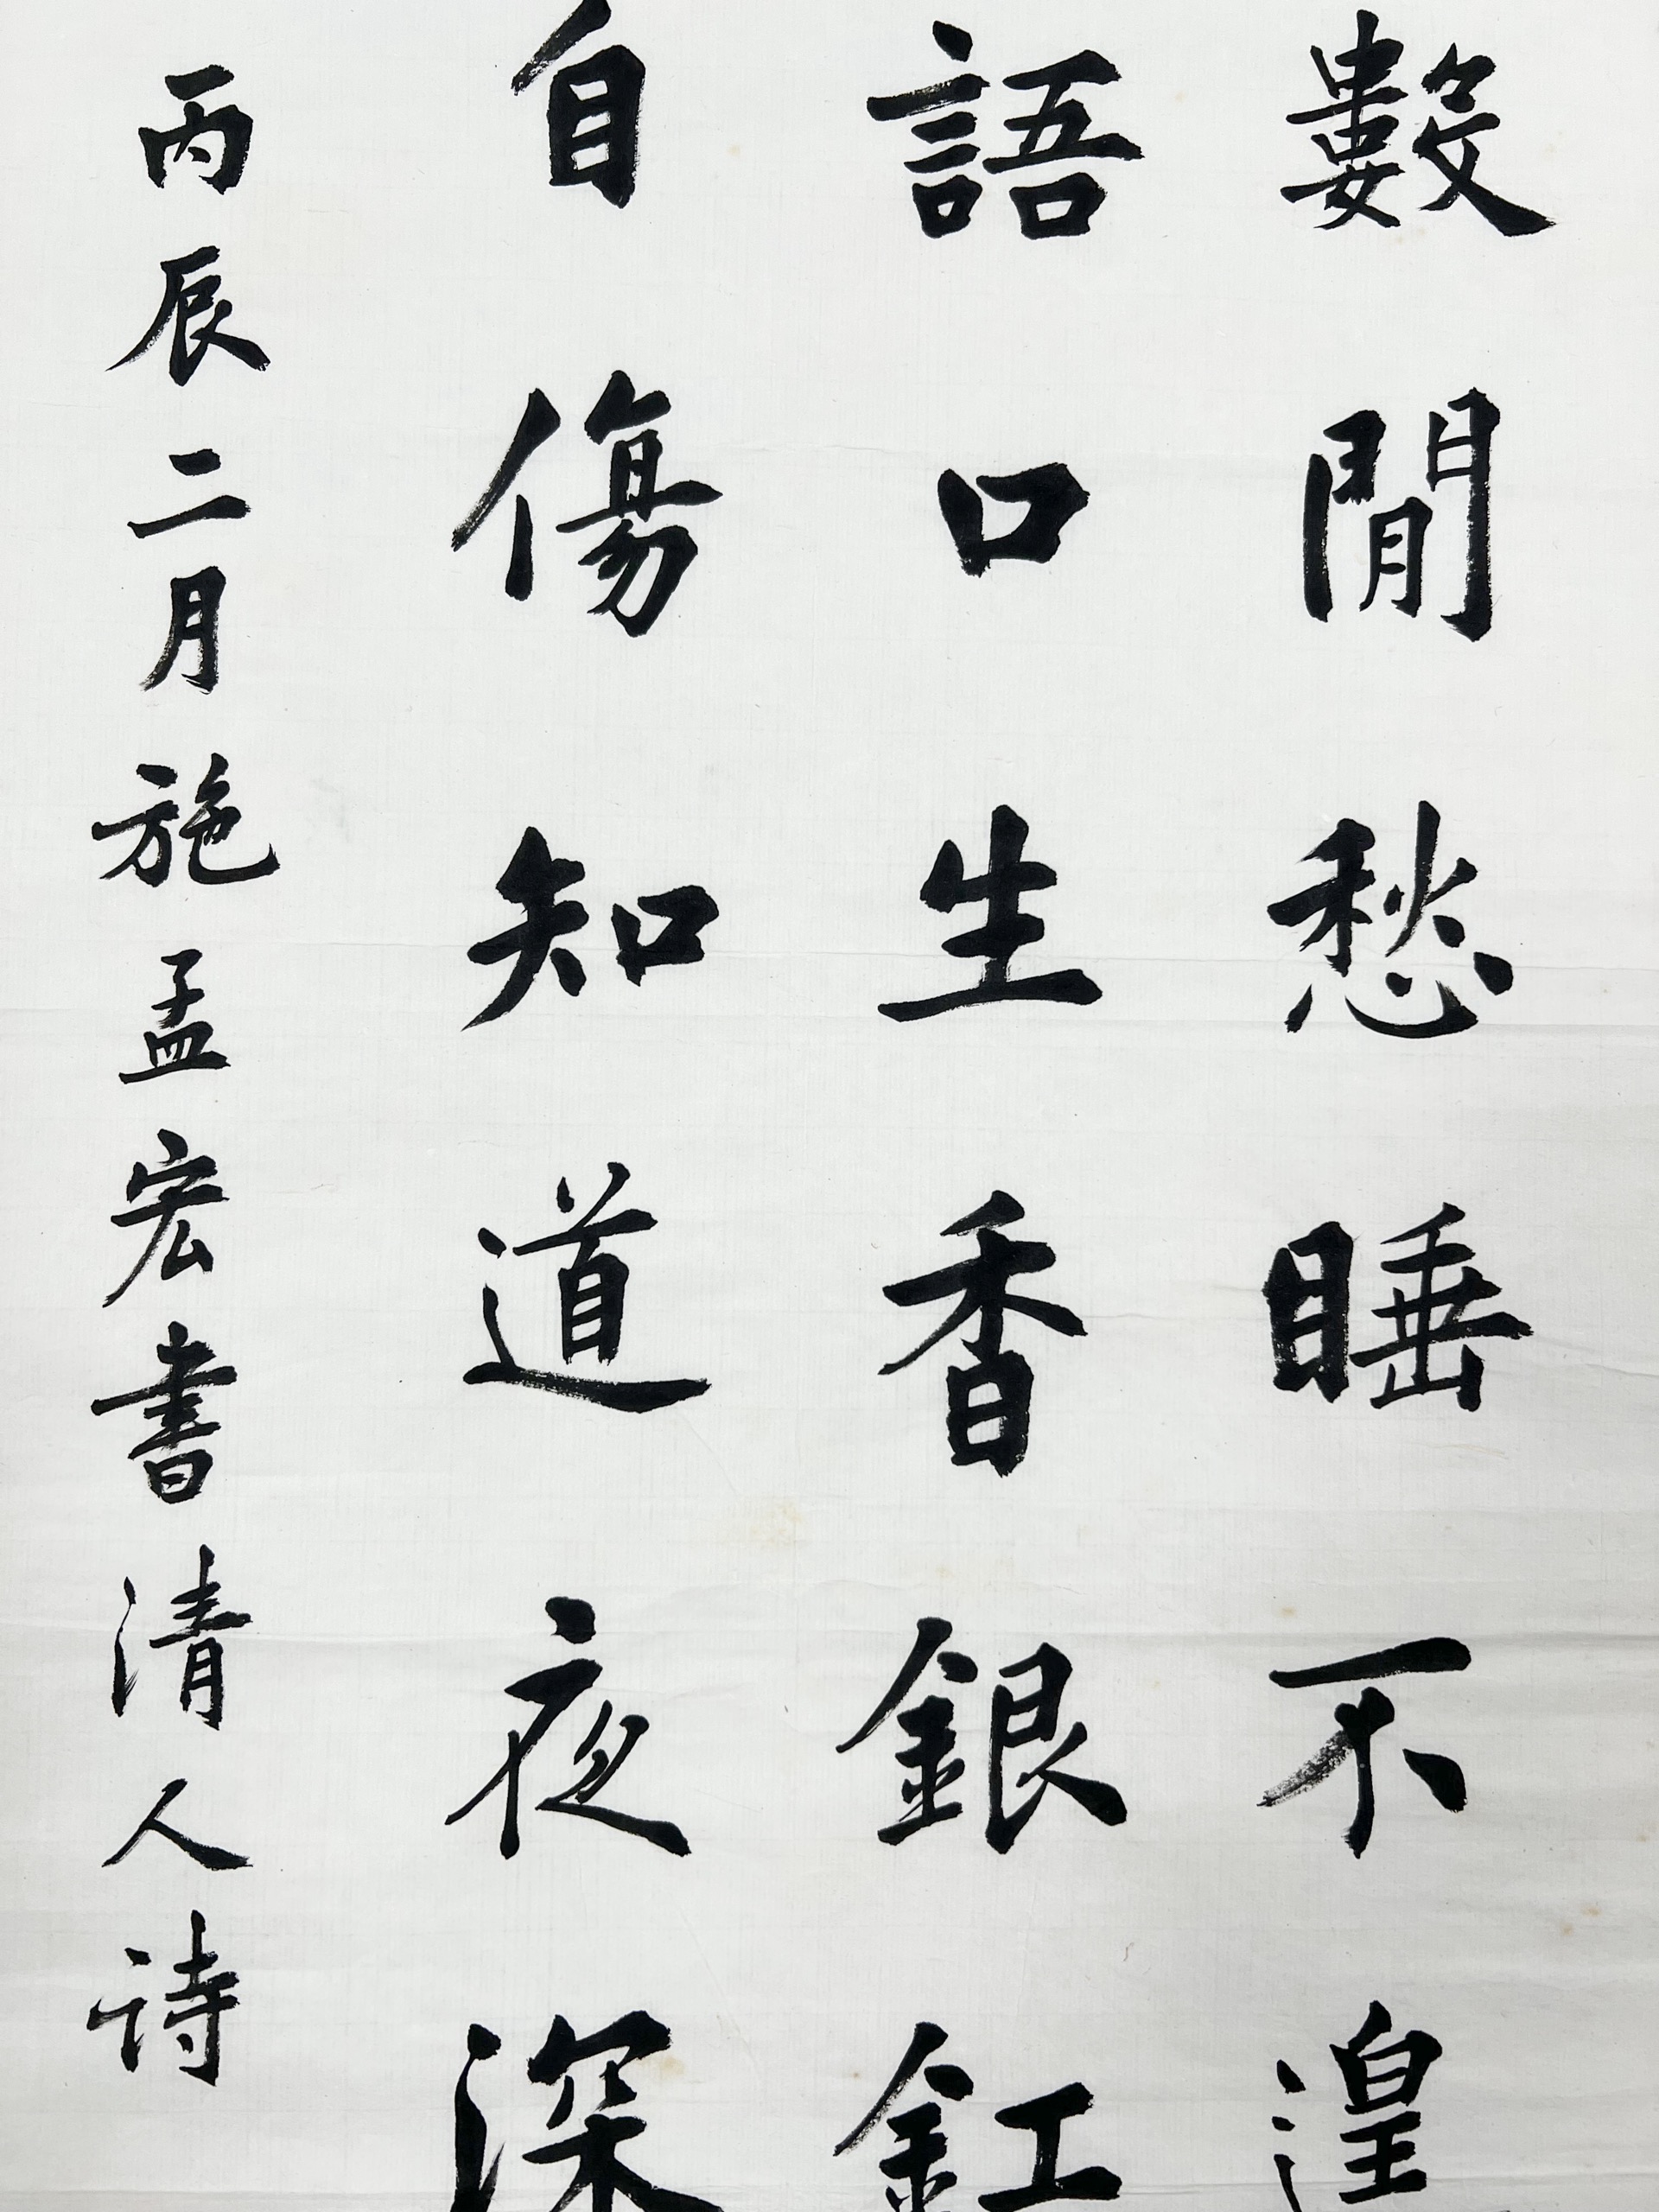 數閒愁睡不遑
語口生香銀釭
自傷知道夜深
丙辰二月施孟宏書清人詩